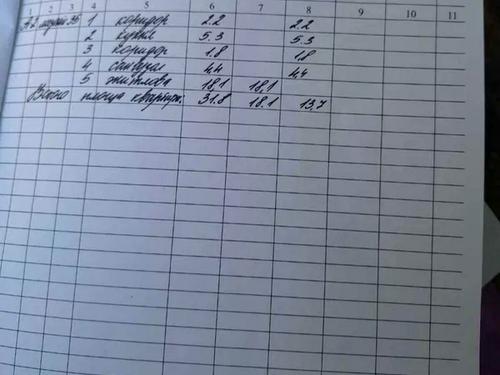 1 2 3 4 5 6 7 8 9 10 11
А2 35 1 коридор 2.2 2.2
2 кухня 5.3 5.3
3 коридор 1.8 1.8
4 санвузол 4,4 4,4
5 житлова 18,1 18,1
Всього площа квартири: 31.8 18.1 13,7